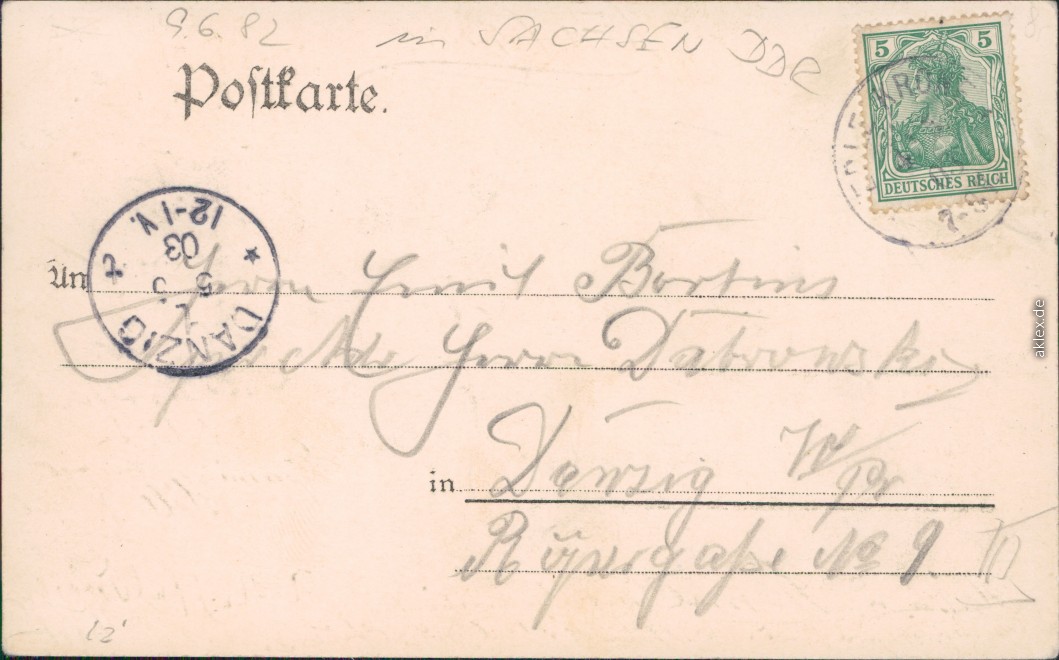 9.6.82 in SACHSEN DDR
Postkarte.
5 5
DEUTSCHES REICH
KRO
7-8
DANZIG
5
03
12-1 V.
An Herrn Emil Bortins
Herrn Dabrowski
in Danzig W/Pr
No 9 III
aklex.de
12'